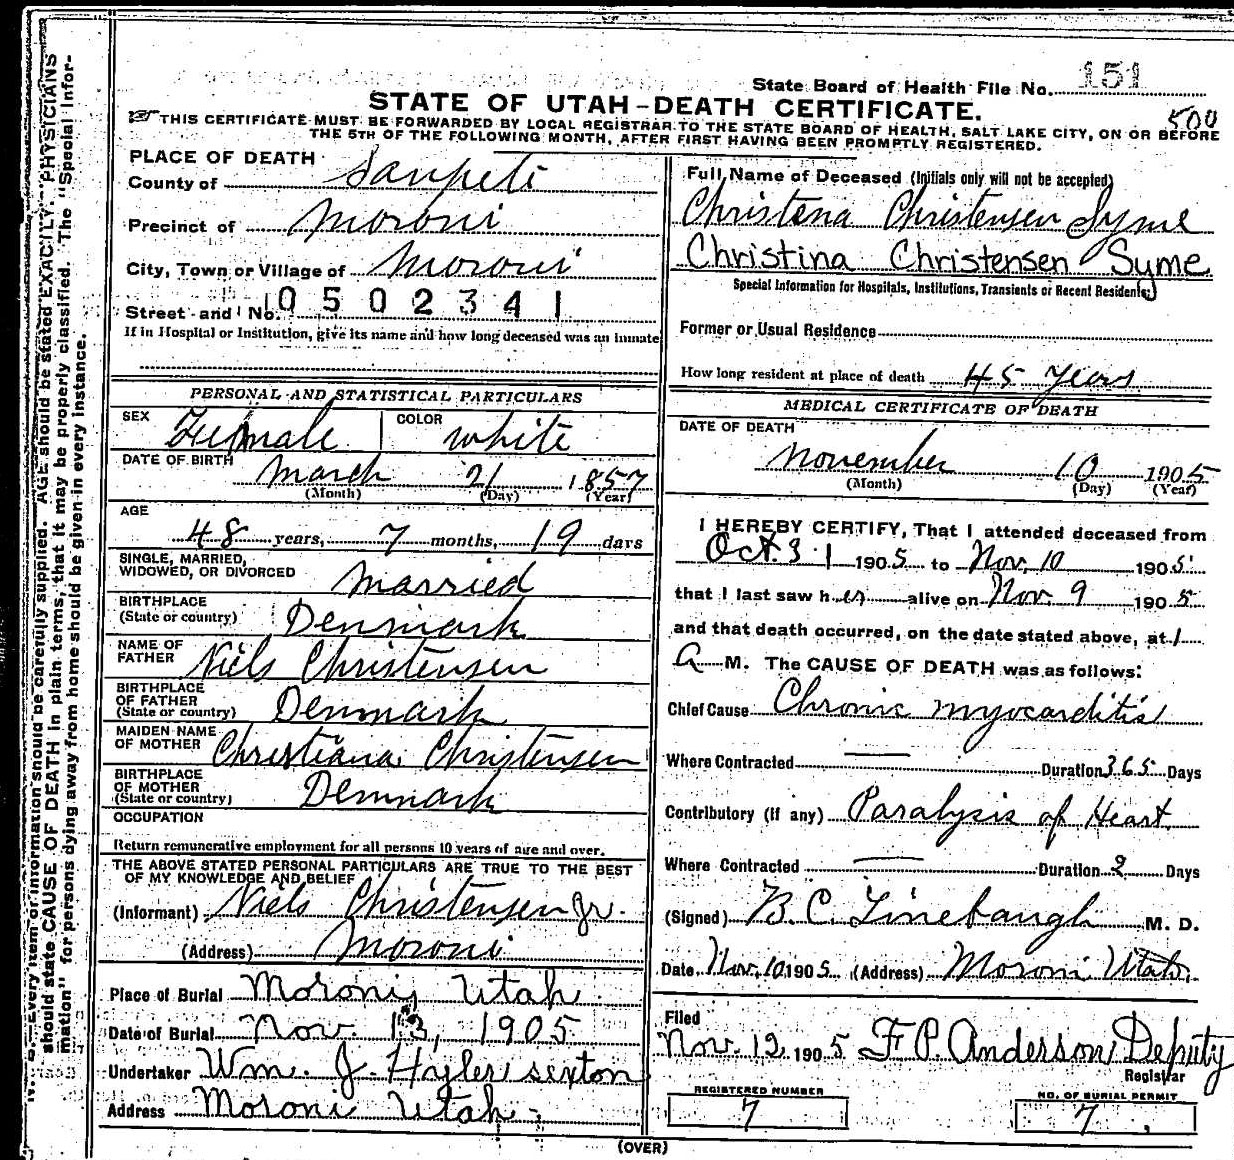 State Board of Health File No. 151
STATE OF UTAH-DEATH CERTIFICATE.
500
THIS CERTIFICATE MUST BE FORWARDED BY LOCAL REGISTRAR TO THE STATE BOARD OF HEALTH, SALT LAKE CITY, ON OR BEFORE
THE 5TH OF THE FOLLOWING MONTH, AFTER FIRST HAVING BEEN PROMPTLY REGISTERED.
PLACE OF DEATH
County of Sanpete
Precinct of Moroni
City, Town or Village of Moroni
Street and No. 0502341
If in Hospital or Institution, give its name and how long deceased was an inmate
PERSONAL AND STATISTICAL PARTICULARS
SEX Female COLOR white
DATE OF BIRTH March 21 1857
(Month) (Day) (Year)
AGE
48 years, 7 months, 19 days
SINGLE, MARRIED,
WIDOWED, OR DIVORCED Married
BIRTHPLACE
(State or country) Denmark
NAME OF
FATHER Niels Christensen
BIRTHPLACE
OF FATHER
(State or country) Denmark
MAIDEN NAME
OF MOTHER Christiana Christensen
BIRTHPLACE
OF MOTHER
(State or country) Denmark
OCCUPATION
Return remunerative employment for all persons 10 years of age and over.
THE ABOVE STATED PERSONAL PARTICULARS ARE TRUE TO THE BEST
OF MY KNOWLEDGE AND BELIEF
(Informant) Niels Christensen Jr.
(Address) Moroni
Place of Burial Moroni, Utah
Date of Burial Nov. 13, 1905
Undertaker Wm. J. Hyler sexton
Address Moroni Utah
Full Name of Deceased (Initials only will not be accepted)
Christena Christensen Syme
Christina Christensen Syme
Special Information for Hospitals, Institutions, Transients or Recent Residents
Former or Usual Residence
How long resident at place of death 45 Years
MEDICAL CERTIFICATE OF DEATH
DATE OF DEATH
November 10 1905
(Month) (Day) (Year)
I HEREBY CERTIFY, That I attended deceased from
Oct. 31 1905 to Nov. 10 1905
that I last saw her alive on Nov. 9 1905
and that death occurred, on the date stated above, at 1
A M. The CAUSE OF DEATH was as follows:
Chief Cause Chronic myocarditis
Where Contracted Duration 365 Days
Contributory (if any) Paralysis of Heart
Where Contracted Duration 2 Days
(Signed) B. C. Linebaugh M. D.
Date Nov. 10 1905 (Address) Moroni Utah
Filed
Nov. 12, 1905 F. P. Anderson, Deputy
Registrar
REGISTERED NUMBER
7
NO. OF BURIAL PERMIT
7
(OVER)
N. B. Every item of information should be carefully supplied. AGE should be stated EXACTLY. PHYSICIANS
should state CAUSE OF DEATH in plain terms, that it may be properly classified. The "Special Infor-
mation" for persons dying away from home should be given in every instance.